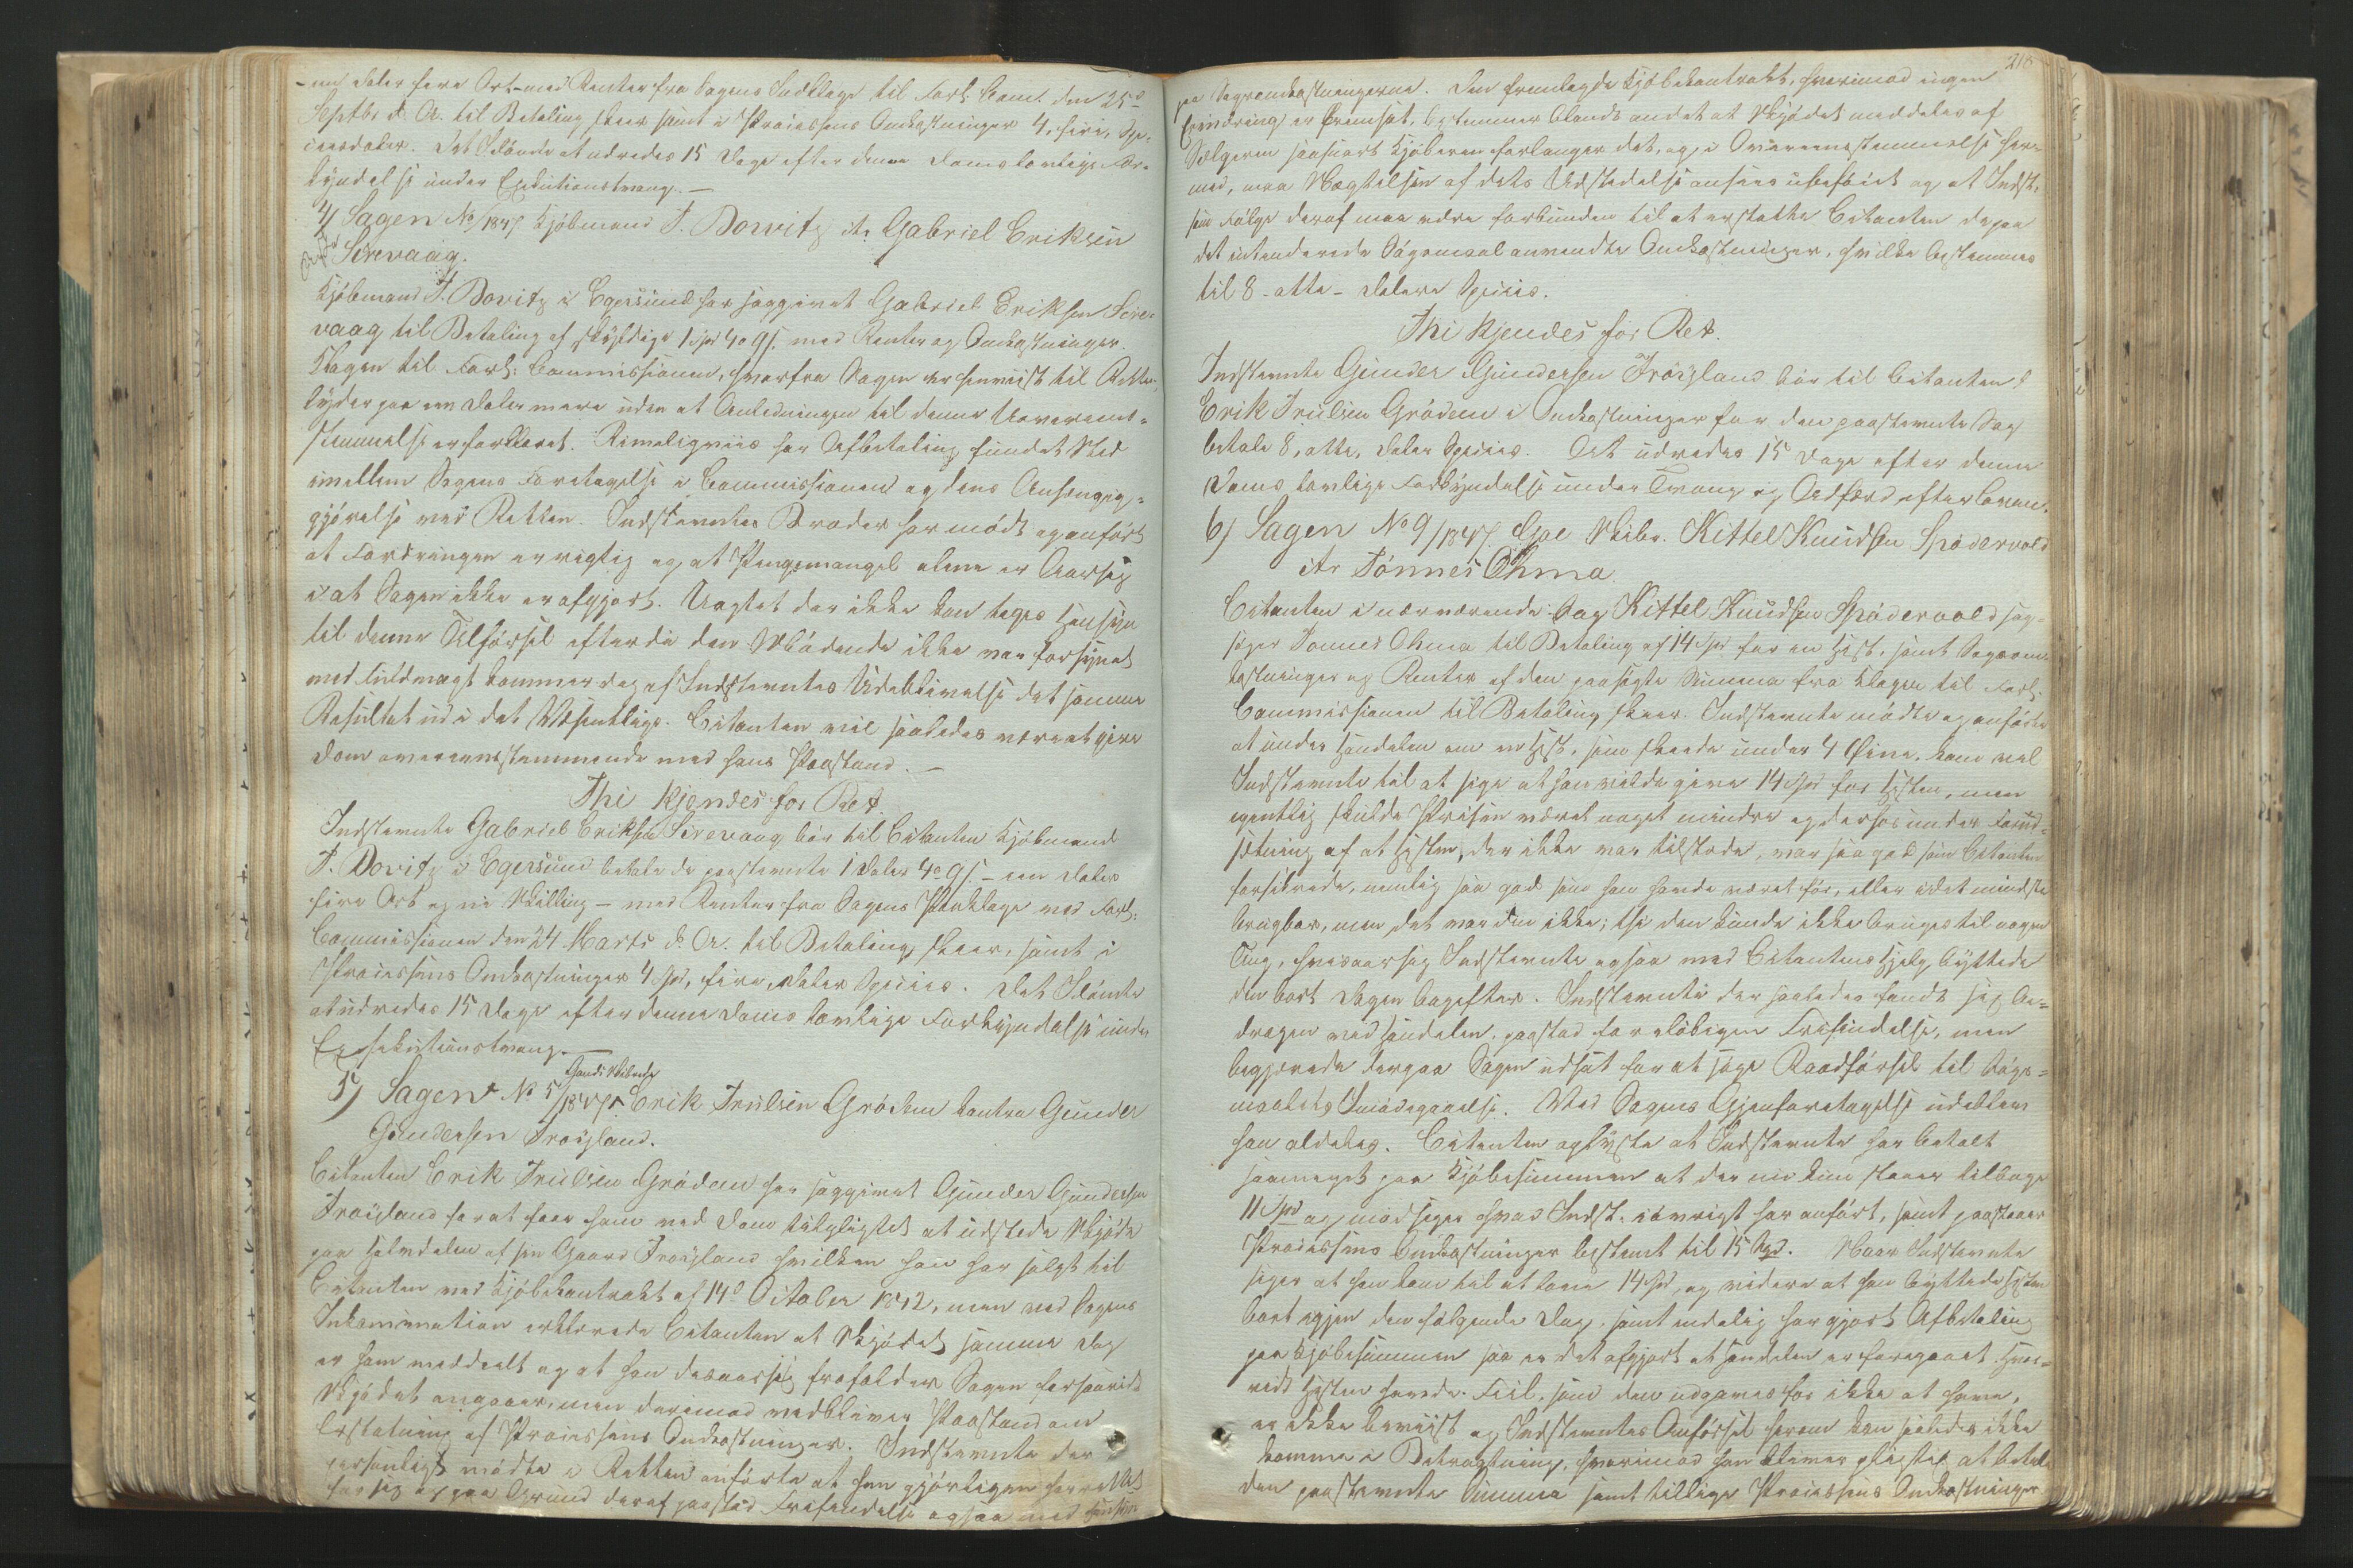 -en Daler fem Ort med Renter fra Sagens Indklage til Forl: Com. den 25de
Septbr d. A. til Betaling skeer samt i Processens Omkostninger 4, fire, Spe-
ciesdaler. Det Idömte at udredes 15 Dage efter denne Doms lovlige For-
kyndelse under Exekutionstvang.—
4/ Sagen No /1847 Kjöbmand F. Dovitz ctr Gabriel Eriksen
Sirevaag.
Kjöbmand F. Dovitz i Egersund har saggivet Gabriel Eriksen Sire-
vaag til Betaling af skyldige 1 Spd 4 o 9 s. med Renter og Omkostninger.
Klagen til Forl: Commissionen, hvorfra Sagen er henviist til Retten,
lyder paa en Daler mere uden at Anledningen til denne Uoverens-
stemmelse er forklaret. Rimeligviis har Afbetaling fundet Sted
imellem Sagens Foretagelse i Commissionen og dens Anhængig-
gjörelse ved Retten. Indstevntes Broder har mödt og anfört
at Fordringen er rigtig og at Pengemangel alene er Aarsag
i at Sagen ikke er afgjort. Uagtet der ikke kan tages Hensyn
til denne Tilförsel efterdi den Mödende ikke var forsynet
med Fuldmagt kommer dog af Indstevntes Udeblivelse det samme
Resultat ud i det Væsentlige. Citanten vil saaledes være at give
Dom overensstemmende med hans Paastand.—
Thi kjendes for Ret.
Indstevnte Gabriel Eriksen Sirevaag bör til Citanten Kjöbmand
F. Dovitz i Egersund betale de paastevnte 1 Daler 4 o 9 s. – een Daler
fire Ort og ni Skilling – med Renter fra Sagens Paaklage ved Forl:
Commissionen den 24 Marts d. A. til Betaling skeer, samt i
Processens Omkostninger 4 Spd, fire, Daler Species. Det Idömte
at udredes 15 Dage efter denne Doms lovlige Forkyndelse under
Exsekutionstvang.—
5) Sagen No 5/1847 Erik Trulsen Gröden contra Gunder
Gundersen Tröyland.
Citanten Erik Trulsen Gröden har saggivet Gunder Gundersen
Tröyland for at faae ham ved Dom tilpligtet at udstede Skjöde
paa Halvdelen af sin Gaard Tröyland hvilken han har solgt til
Citanten ved Kjöbekontrakt af 14de October 1842, men ved Sagens
Inkamination erklærede Citanten at Skjödet samme Dag
er ham meddeelt og at han desaarsag frafalder Sagen forsaavidt
Skjödet angaaer, men derimod vedbliver Paastand om
Erstatning af Processens Omkostninger. Indstevnte der
personligt mödte i Retten anförte at han gjörligen
for sig og paa Grund deraf paastod Frifindelse ogsaa med Hensyn
218
paa Sagsomkostningerne. Den fremlagde Kjöbekontrakt, hvorimod ingen
Erindring er fremsat, bestemmer blandt andet at Skjödet meddeles af
Sælgeren saasnart Kjöberen forlanger det, og i Overensstemmelse her-
med, maa Nægtelsen af dets Udstedelse ansees ubeföiet og at Indst.
som Fölge deraf maa være forbunden til at erstatte Citanten de paa
det intenderede Sögsmaal anvendte Omkostninger, hvilke bestemmes
til 8 – otte – Dalere Species.
Thi kjendes for Ret.
Indstevnte Gunder Gundersen Tröyland bör til Citanten
Erik Trulsen Gröden i Omkostninger for den paastevnte Sag
betale 8, otte, Daler Species. At udredes 15 Dage efter denne
Doms lovlige Forkyndelse under Tvang og Adfærd efter Loven.
6) Sagen No 9/1847 Kittel Knudsen Spödervold
ctr Tönnes Ohma.
Citanten i nærværende Sag Kittel Knudsen Spödervold sag-
söger Tönnes Ohma til Betaling af 14 Spd for en Hest, samt Sagsom-
kostninger og Renter af den paasögte Summa fra Klagen til Forl:
Commissionen til Betaling skeer. Indstevnte mödte og anförte
at under Handelen om en Hest, som skeede under 4 Öine, kom vel
Indstevnte til at sige at han vilde give 14 Spd for Hesten, men
egentlig skulde Prisen været noget mindre og derhos under Forud-
sætning af at Hesten, der ikke var tilstede, var saa god som Citanten
forsikrede, nemlig saa god som han havde været för, eller i det mindste
brugbar, men det var den ikke; thi den kunde ikke bruges til nogen
Ting, hvisaarsag Indstevnte ogsaa med Citantens Hjelp byttede
den bort Dagen bagefter. Indstevnte der saaledes fandt sig be-
dragen ved Handelen, paastod forelöbigen Frifindelse, men
begjerede derpaa Sagen udsat for at söge Raadförsel til Sögs-
maalets Imödegaaelse. Ved Sagens Gjenforetagelse udeblev
han aldeles. Citanten oplyste at Indstevnte har betalt
saameget paa Kjöbesummen at der nu kun staaer tilbage
11 Spd og modsiger hvad Indst. iövrigt har anfört, samt paastaaer
Processens Omkostninger bestemt til 15 Spd. Naar Indstevnte
siger at han kom til at love 14 Spd, og videre at han byttede Hesten
bort igjen den fölgende Dag, samt endelig har gjort Afbetaling
paa Kjöbesummen saa er det afgjort at Handelen er foregaaet. Hvor-
vidt Hesten havde Feil, som den udgaves for ikke at have,
er ikke beviist og Indstevntes Anförsel herom kan saaledes ikke
komme i Betragtning, hvorimod han bliver pligtig at betale
den paastevnte Summa samt tillige Processens Omkostninger